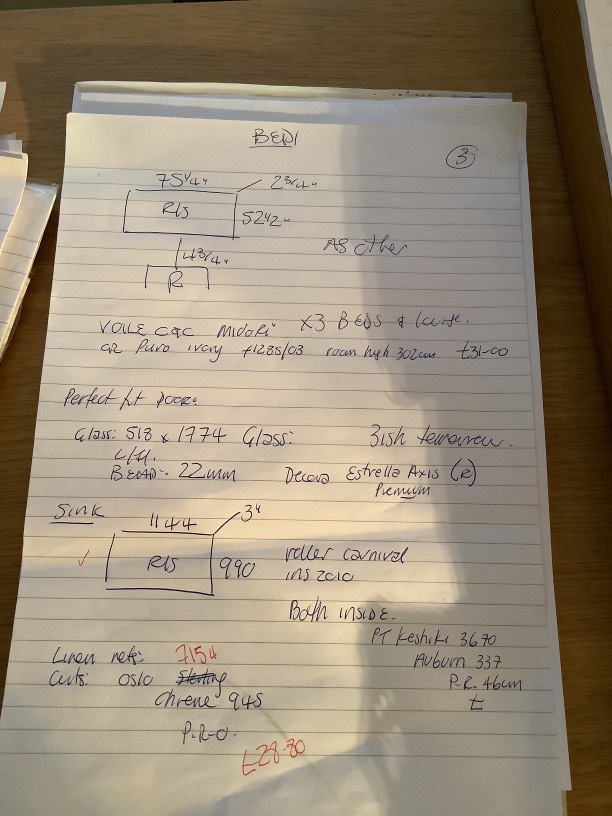 BED1
3
75 1/4" 2 3/4"
R/S 52 1/2"
AS other
4 3/4"
R
VOILE C&C Midori x3 BEDS &
or Puro ivory f1285/03 roam high 302cm £31-00
Perfect fit Door:
Glass: 518 x 1774 Glass: 3ish tomorrow.
L/H.
BEAD:- 22mm Decora Estrella Axis (R)
Premium
Sink
1144 3"
R/S 990 roller carnival
ins 2010
Both inside.
PT Keshiki 3670
Linen nets: 7154 Auburn 337
Curts: Oslo Sterling P.R. 46cm
Chrome 945 £
P.R-O.
£28-80